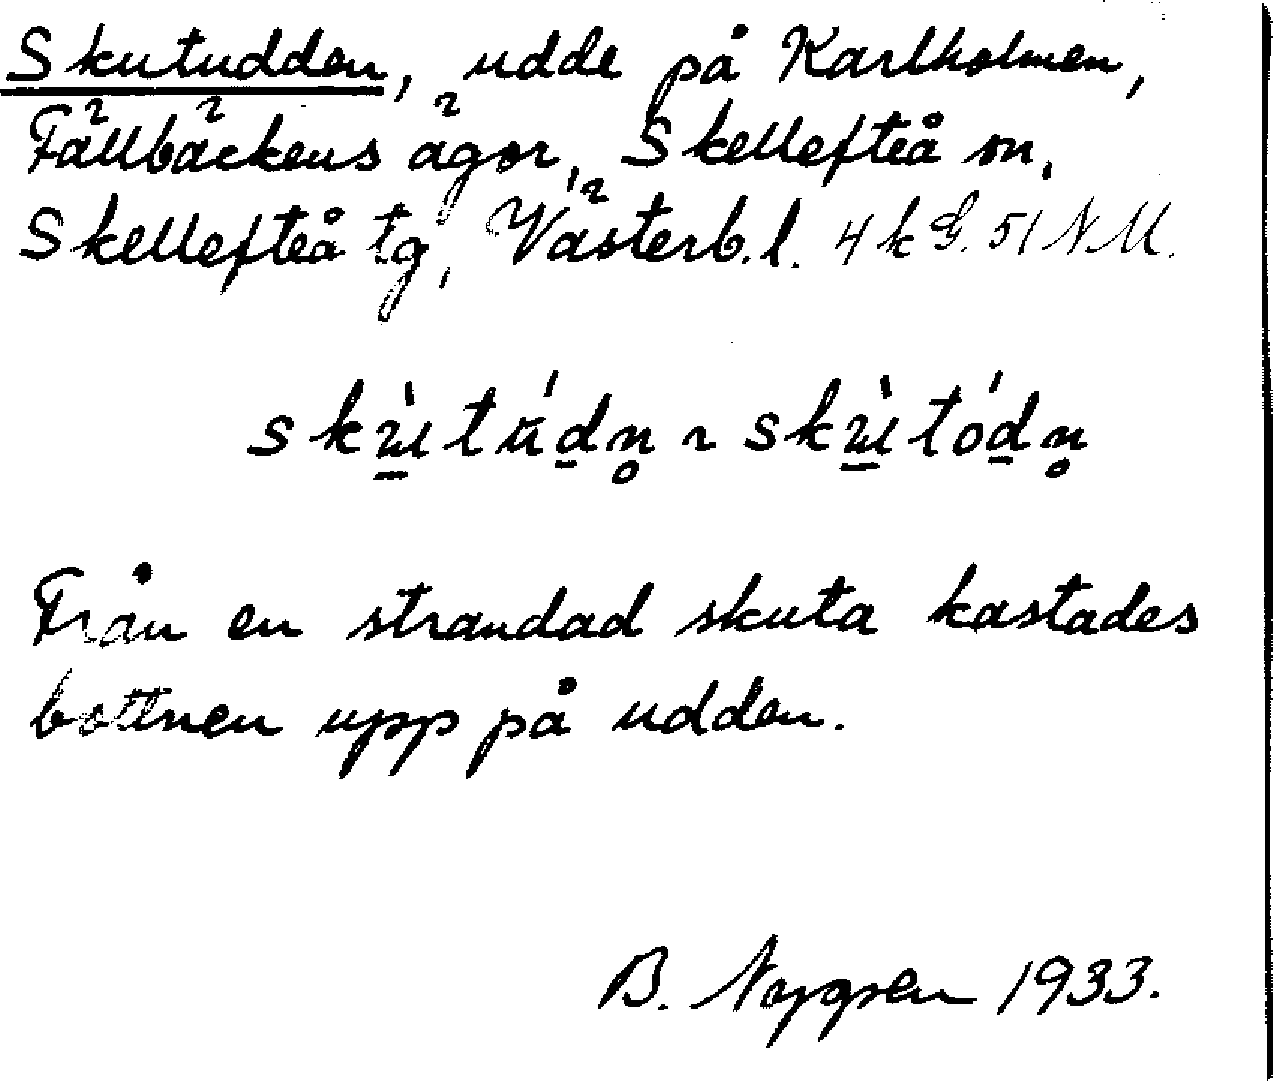 Skutudden, udde på Karlholmen,
Fällbäckens ägor, Skellefteå sn,
Skellefteå tg, Västerb. l. 4 k G. 51 N.M.
skɯ̠̀tʉ́d̠n̥ ~ skɯ̠̀tód̠n̥
Från en strandad skuta kastades
bottnen upp på udden.
B. Nygren 1933.